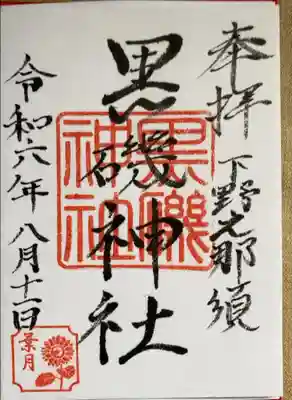 奉拝 下野 那須
黒磯神社
黒磯
神社
令和六年八月十一日
葉月